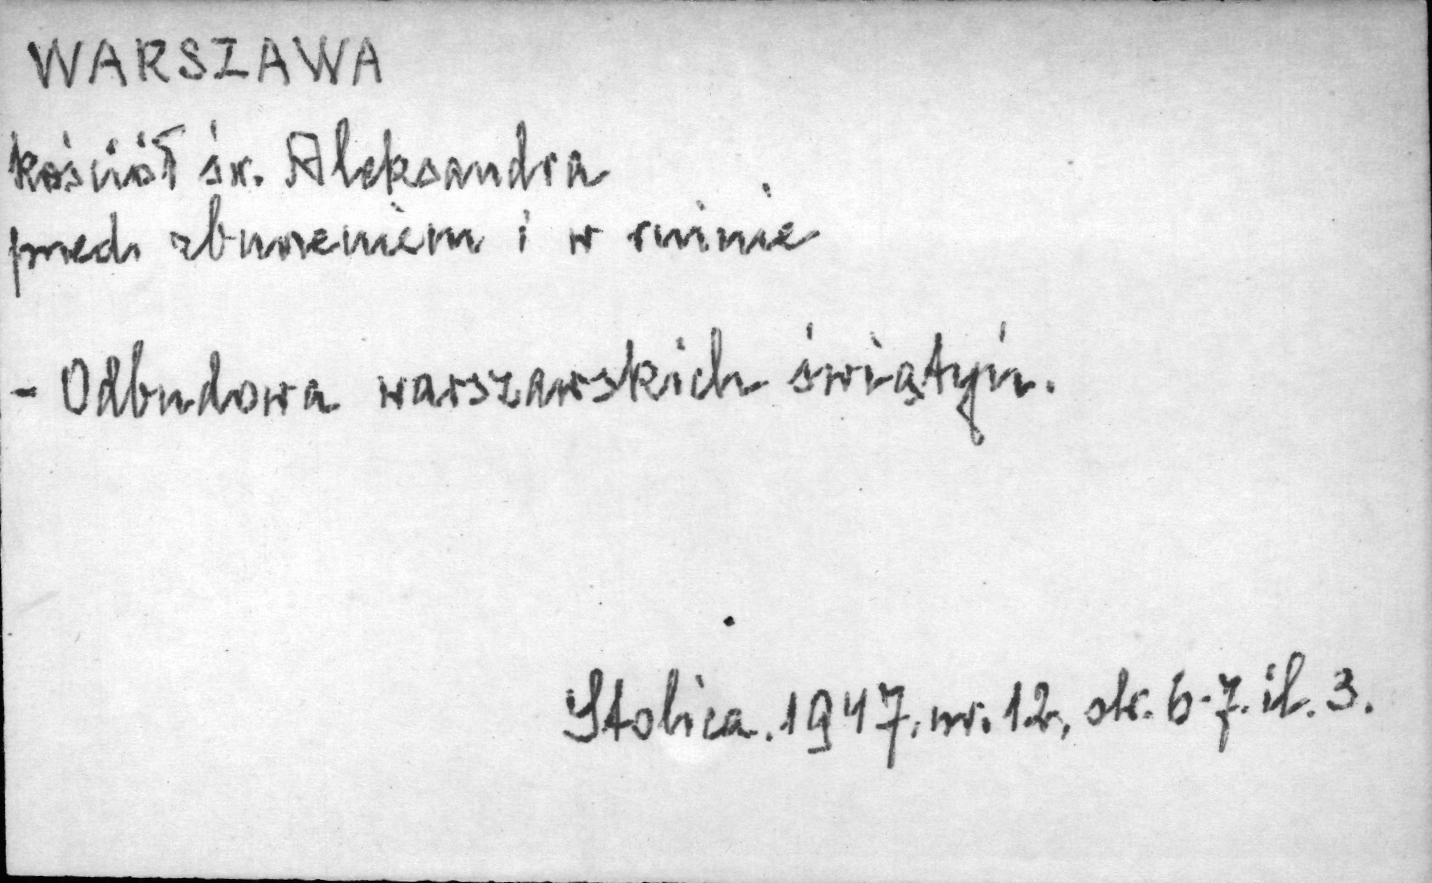 WARSZAWA
kościół św. Aleksandra
przed zburzeniem i w ruinie
- Odbudowa warszawskich świątyń.
Stolica. 1947. nr. 12, str. 6-7. il. 3.